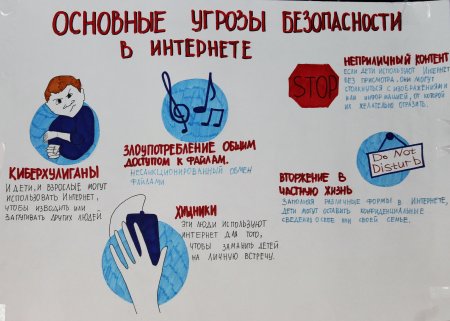 ОСНОВНЫЕ УГРОЗЫ БЕЗОПАСНОСТИ
В ИНТЕРНЕТЕ
КИБЕРХУЛИГАНЫ
И ДЕТИ, И ВЗРОСЛЫЕ МОГУТ
ИСПОЛЬЗОВАТЬ ИНТЕРНЕТ,
ЧТОБЫ ИЗВОДИТЬ ИЛИ
ЗАПУГИВАТЬ ДРУГИХ ЛЮДЕЙ
ЗЛОУПОТРЕБЛЕНИЕ ОБЩИМ
ДОСТУПОМ К ФАЙЛАМ.
НЕСАНКЦИОНИРОВАННЫЙ ОБМЕН
ФАЙЛАМИ
ХИЩНИКИ
ЭТИ ЛЮДИ ИСПОЛЬЗУЮТ
ИНТЕРНЕТ ДЛЯ ТОГО,
ЧТОБЫ ЗАМАНИТЬ ДЕТЕЙ
НА ЛИЧНУЮ ВСТРЕЧУ.
STOP
НЕПРИЛИЧНЫЙ КОНТЕНТ
ЕСЛИ ДЕТИ ИСПОЛЬЗУЮТ ИНТЕРНЕТ
БЕЗ ПРИСМОТРА, ОНИ МОГУТ
СТОЛКНУТЬСЯ С ИЗОБРАЖЕНИЯМИ
ИЛИ ИНФОРМАЦИЕЙ, ОТ КОТОРОЙ
ИХ ЖЕЛАТЕЛЬНО
Do Not
Disturb
ВТОРЖЕНИЕ В
ЧАСТНУЮ ЖИЗНЬ
ЗАПОЛНЯЯ РАЗЛИЧНЫЕ ФОРМЫ В ИНТЕРНЕТЕ,
ДЕТИ МОГУТ ОСТАВИТЬ КОНФИДЕНЦИАЛЬНЫЕ
СВЕДЕНИЯ О СЕБЕ ИЛИ СВОЕЙ СЕМЬЕ.